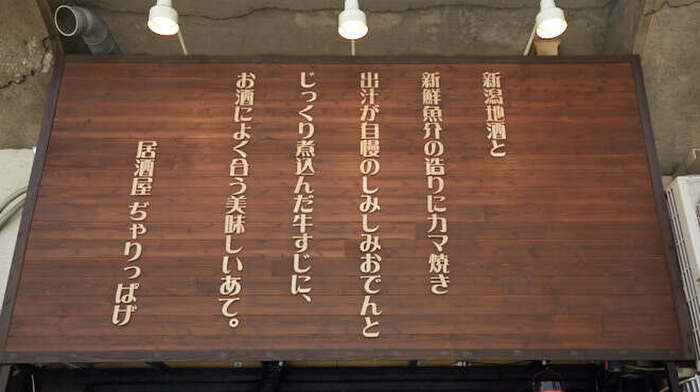 新潟地酒と
新鮮魚介の造りにカマ焼き
出汁が自慢のしみしみおでんと
じっくり煮込んだ牛すじに、
お酒によく合う美味しいあて。
居酒屋 ぢゃりっぱげ